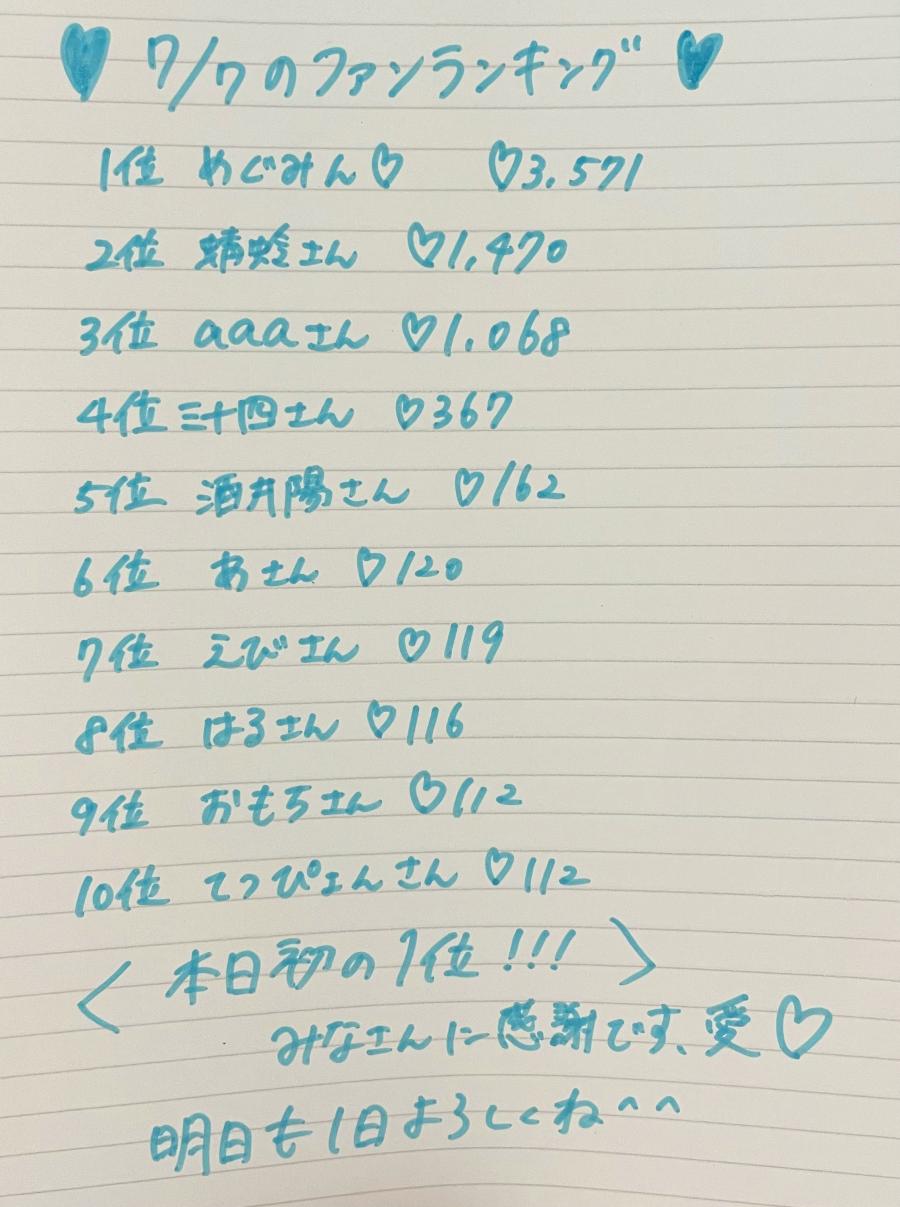 ♥ 7/7のファンランキング ♥
1位 めぐみん♡ ♡3.571
2位 蜻蛉さん ♡1,470
3位 aaaさん ♡1.068
4位 三十四さん ♡367
5位 酒井陽さん ♡162
6位 あさん ♡120
7位 えびさん ♡119
8位 はるさん ♡116
9位 おもちさん ♡112
10位 てつぴょんさん ♡112
〈 本日初の1位!!! 〉
みなさんに感謝です、愛♡
明日も1日よろしくね^^